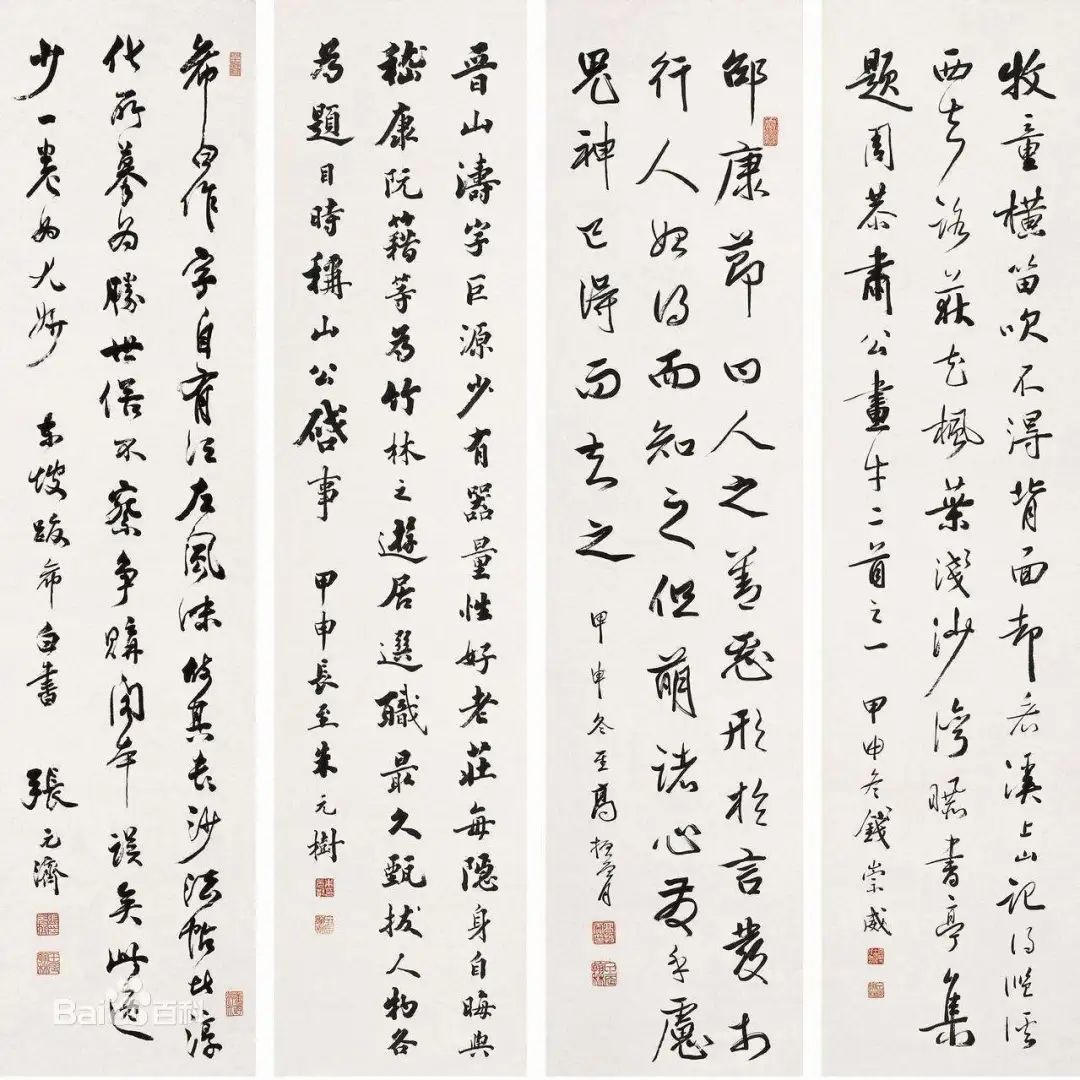 牧童橫笛吹不得背面却看溪上山記得臨溪
西去路荻花楓葉淺沙灣曝書亭集
題周恭肅公畫牛二首之一 甲申冬錢崇威
邵康節曰人之善惡形於言發於
行人始得而知之但萌諸心發乎慮
鬼神已得而去之 甲申冬至高振霄
晉山濤字巨源少有器量性好老莊每隱身自晦與
嵇康阮籍等為竹林之遊居選職最久甄拔人物各
為題目時稱山公啓事 甲申長至朱元樹
希白作字自有江左風味故其長沙法帖比淳
化所摹為勝世俗不察爭購閣本誤矣此逸
少一卷為尤妙 東坡跋希白書 張元濟
Bai百科